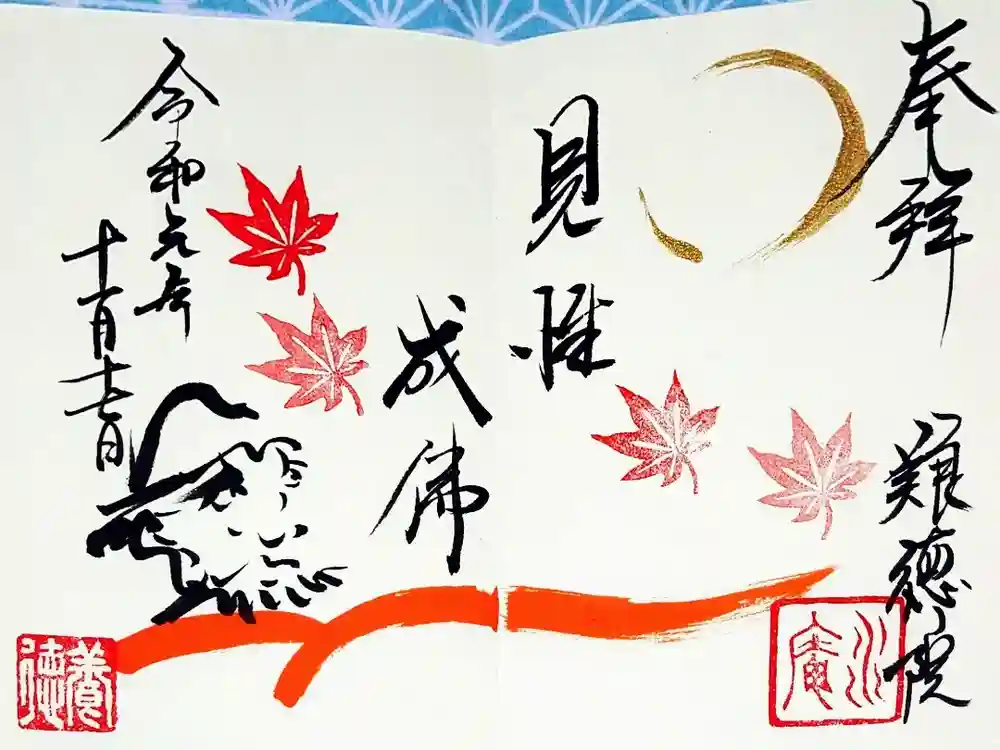 奉拝
難徳院
見性
成佛
令和元年
十一月十七日
養徳